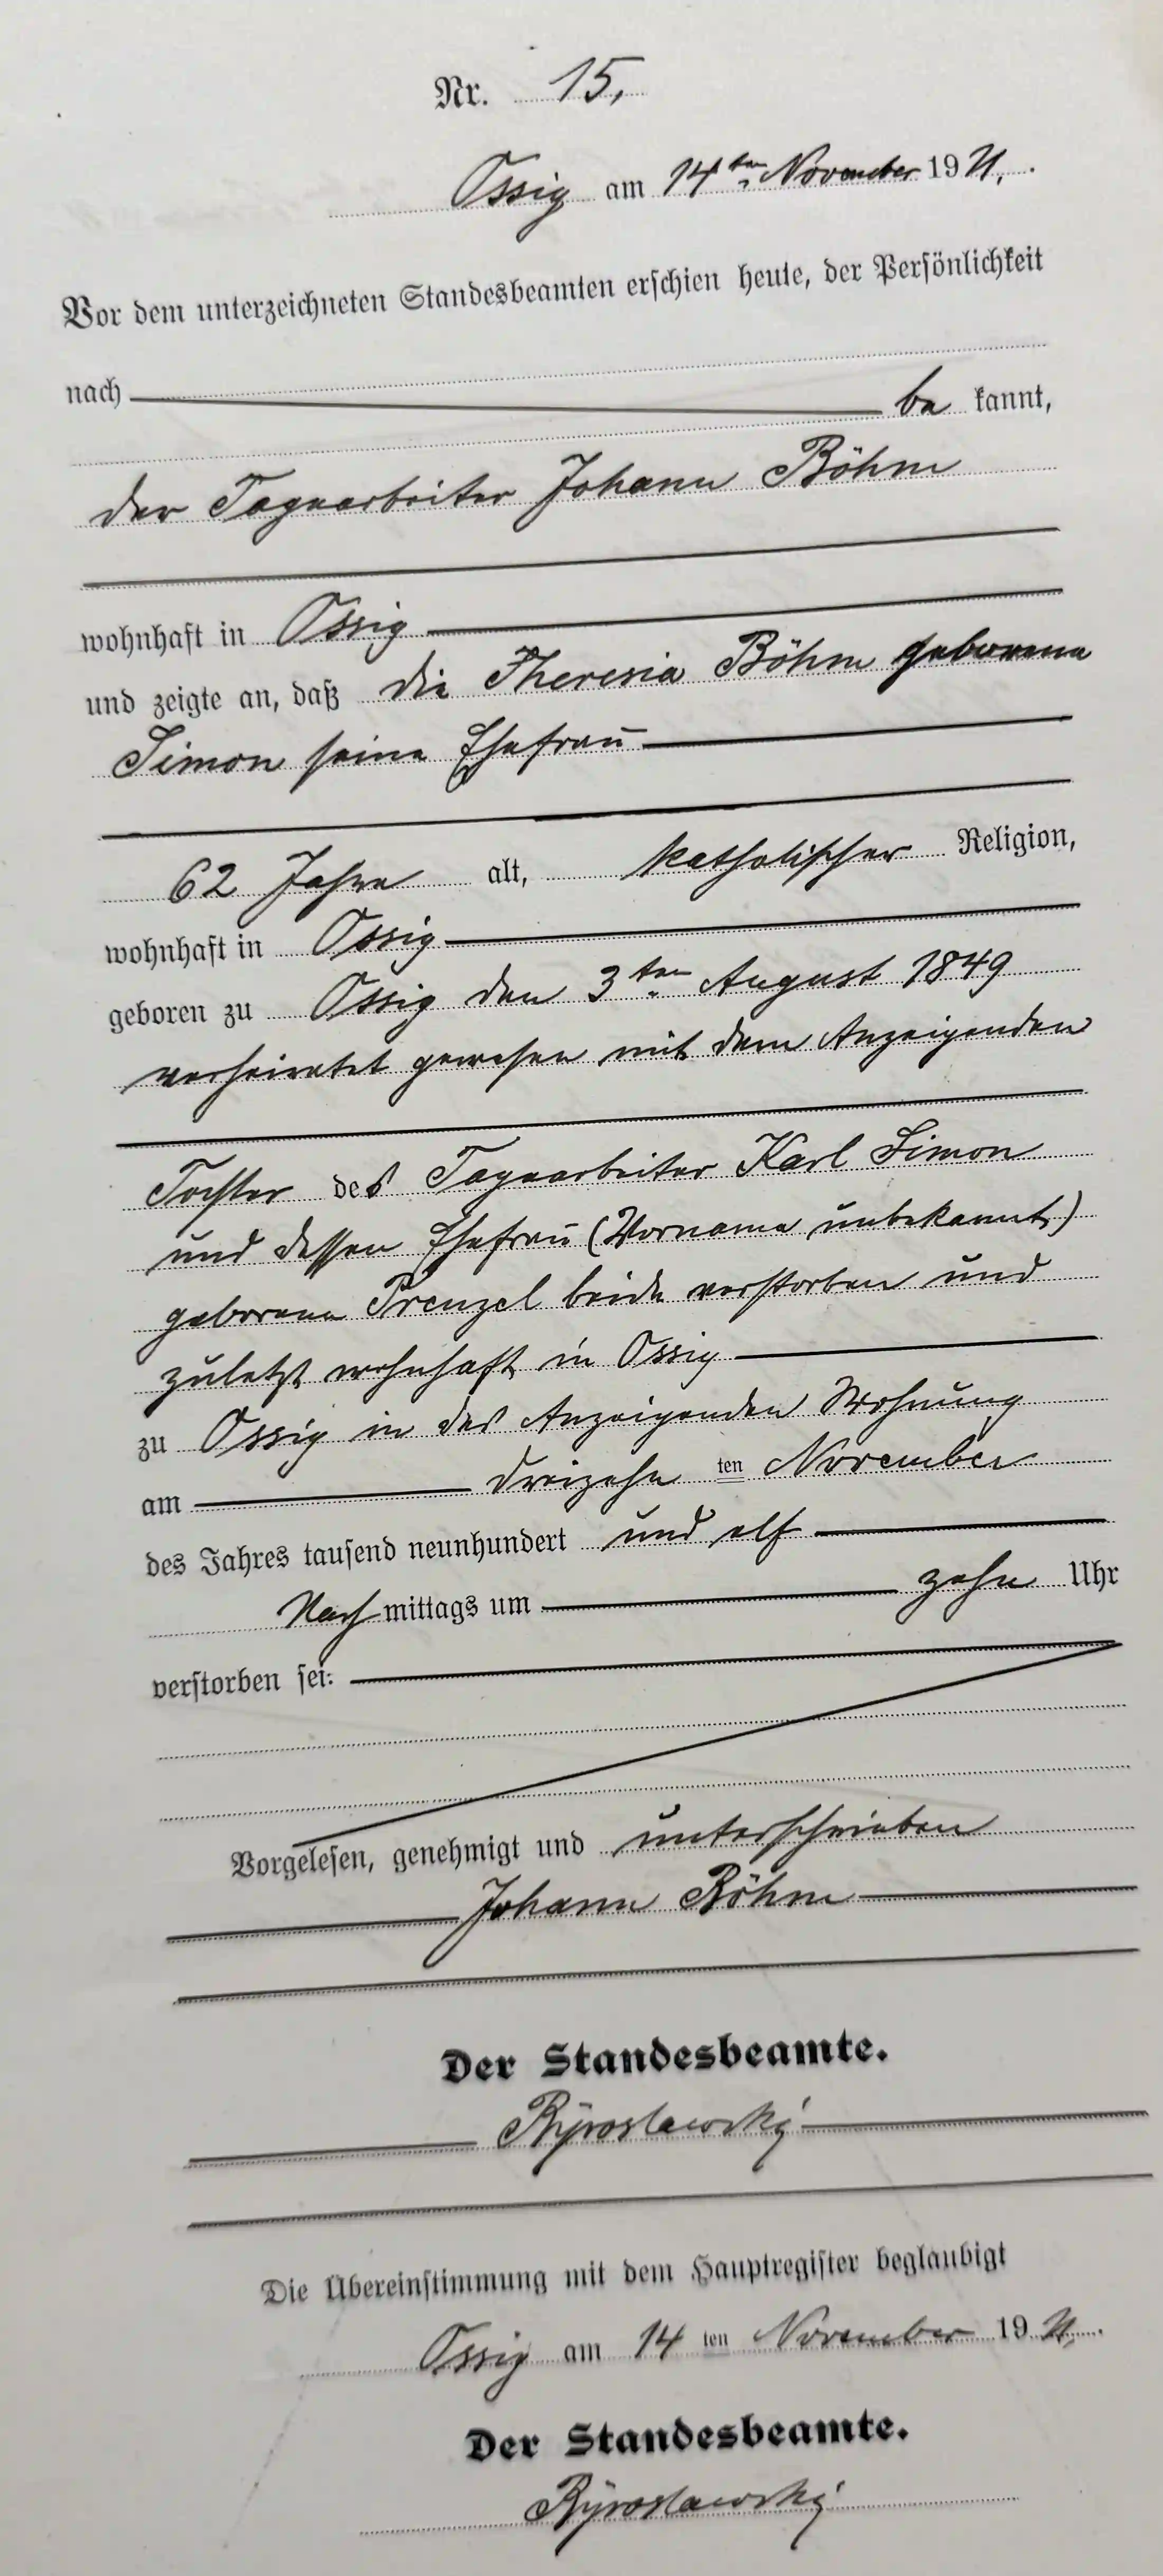 Nr. 15,
Ossig am 14ten November 1911.
Vor dem unterzeichneten Standesbeamten erschien heute, der Persönlichkeit
nach be kannt,
der Tagearbeiter Johann Böhm
wohnhaft in Ossig
und zeigte an, daß die Theresia Böhm geborene
Simon seine Ehefrau
62 Jahre alt, katholischer Religion,
wohnhaft in Ossig
geboren zu Ossig den 3ten August 1849
verheiratet gewesen mit dem Anzeigenden
Tochter des Tagearbeiter Karl Simon
und dessen Ehefrau (Vorname unbekannt)
geborene Prenzel beide verstorben und
zuletzt wohnhaft in Ossig
zu Ossig in des Anzeigenden Wohnung
am dreizehn ten November
des Jahres tausend neunhundert und elf
Nach mittags um zehn Uhr
verstorben sei:
Vorgelesen, genehmigt und unterschrieben
Johann Böhm
Der Standesbeamte.
Die Übereinstimmung mit dem Hauptregister beglaubigt
Ossig am 14 ten November 1911.
Der Standesbeamte.